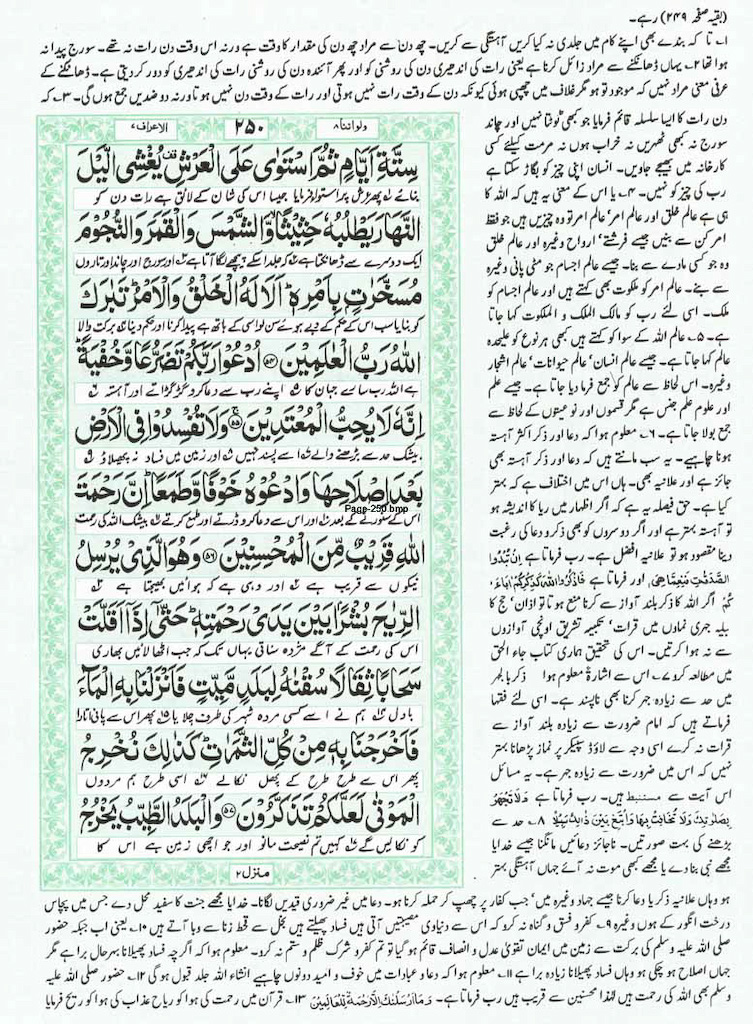 (بقیہ صفحہ ۲۴۹) رہے۔
۱۔ تا کہ بندے بھی اپنے کام میں جلدی نہ کیا کریں آہستگی سے کریں۔ چھ دن سے مراد چھ دن کی مقدار کا وقت ہے ورنہ اس وقت دن رات نہ تھے۔ سورج پیدا نہ
ہوا تھا ۲۔ یہاں ڈھانکنے سے مراد زائل کرنا ہے یعنی رات کی اندھیری دن کی روشنی کو اور پھر آئندہ دن کی روشنی رات کی اندھیری کو دور کر دیتی ہے۔ ڈھانکنے کے
عرفی معنی مراد نہیں کہ موجود تو ہو مگر غلاف میں چھپی ہوئی کیونکہ دن کے وقت رات نہیں ہوتی اور رات کے وقت دن نہیں ہوتا ورنہ دو ضدیں جمع ہوں گی۔ ۳۔ کہ
دن رات کا ایسا سلسلہ قائم فرمایا جو کبھی ٹوٹتا نہیں اور چاند
سورج نہ کبھی ٹھہریں نہ خراب ہوں نہ مرمت کیلئے کسی
کارخانہ میں بھیجے جاویں۔ انسان اپنی چیز کو بگاڑ سکتا ہے
رب کی چیز کو نہیں۔ ۴۔ یا اس کے معنی یہ ہیں کہ اللہ کا
ہی ہے عالم خلق اور عالم امر، عالم امر تو وہ چیزیں ہیں جو فقط
امر کن سے بنیں جیسے فرشتے، ارواح وغیرہ اور عالم خلق
وہ جو کسی مادے سے بنا۔ جیسے عالم اجسام جو مٹی پانی وغیرہ
سے بنے۔ عالم امر کو ملکوت بھی کہتے ہیں اور عالم اجسام کو
ملک۔ اسی لئے رب کو مالک الملک و الملکوت کہا جاتا
ہے۔ ۵۔ عالم اللہ کے سوا کو کہتے ہیں کبھی ہر نوع کو علیحدہ
عالم کہا جاتا ہے۔ جیسے عالم انسان، عالم حیوانات، عالم اشجار
وغیرہ۔ اس لحاظ سے عالم کو جمع فرما دیا جاتا ہے۔ جیسے علم
اور علوم علم جنس ہے مگر قسموں اور نوعیتوں کے لحاظ سے
جمع بولا جاتا ہے۔ ۶۔ معلوم ہوا کہ دعا اور ذکر اکثر آہستہ
ہونا چاہیے۔ یہ سب مانتے ہیں کہ دعا اور ذکر آہستہ بھی
جائز ہے اور علانیہ بھی۔ ہاں اس میں اختلاف ہے کہ بہتر
کیا ہے۔ حق فیصلہ یہ ہے کہ اگر اظہار میں ریا کا اندیشہ ہو
تو آہستہ بہتر ہے اور اگر دوسروں کو بھی ذکر و دعا کی رغبت
دینا مقصود ہو تو علانیہ افضل ہے۔ رب فرماتا ہے اِنْ تُبْدُوا
الصَّدَقٰتِ فَنِعِمَّا هِیَ اور فرماتا ہے فَاذْكُرُوا اللّٰهَ كَذِكْرِكُمْ اٰبَآءَ
كُمْ اگر اللہ کا ذکر بلند آواز سے کرنا منع ہوتا تو اذان، حج کا
بیلیہ جہری نمازوں میں قرات، تکبیر تشریق اونچی آوازوں
سے نہ ہوا کرتیں۔ اس کی تحقیق ہماری کتاب جاء الحق
میں مطالعہ کرو ۷۔ اس سے اشارۃً معلوم ہوا ذکر بالجہر
میں حد سے زیادہ جہر کرنا بھی ناپسند ہے۔ اسی لئے فقہا
فرماتے ہیں کہ امام ضرورت سے زیادہ بلند آواز سے
قرات نہ کرے اسی وجہ سے لاؤڈ سپیکر پر نماز پڑھانا بہتر
نہیں کہ اس میں ضرورت سے زیادہ جہر ہے۔ یہ مسائل
اس آیت سے مستنبط ہیں۔ رب فرماتا ہے وَلَا تَجْهَرْ
بِصَلَاتِكَ وَلَا تُخَافِتْ بِهَا وَابْتَغِ بَیْنَ ذٰلِكَ سَبِیْلًا ۸۔ حد سے
بڑھنے کی بہت صورتیں۔ ناجائز دعائیں مانگنا جیسے خدایا
مجھے نبی بنا دے یا مجھے کبھی موت نہ آئے جہاں آہستگی بہتر
ولواننا ۸ ۲۵۰ الاعراف ۷
سِتَّةِ اَیَّامٍ ثُمَّ اسْتَوٰی عَلَی الْعَرْشِ یُغْشِی الَّیْلَ
بنائے پھر عرش پر استواء فرمایا جیسا اس کی شان کے لائق ہے رات دن کو
النَّهَارَ یَطْلُبُهٗ حَثِیْثًا وَّالشَّمْسَ وَالْقَمَرَ وَالنُّجُوْمَ
ایک دوسرے سے ڈھانکتا ہے کہ جلد اسکے پیچھے لگا آتا ہے اور سورج اور چاند اور تاروں
مُسَخَّرٰتٍۭ بِاَمْرِهٖ اَلَا لَهُ الْخَلْقُ وَالْاَمْرُ تَبٰرَكَ
کو بنایا سب اس کے حکم کے دبے ہوئے سن لو اسی کے ہاتھ ہے پیدا کرنا اور حکم دینا بڑی برکت والا
اللّٰهُ رَبُّ الْعٰلَمِیْنَ ۵۴ اُدْعُوْا رَبَّكُمْ تَضَرُّعًا وَّخُفْیَةً
ہے اللہ رب سارے جہان کا اپنے رب سے دعا کرو گڑگڑاتے اور آہستہ
اِنَّهٗ لَا یُحِبُّ الْمُعْتَدِیْنَ ۵۵ وَلَا تُفْسِدُوْا فِی الْاَرْضِ
بیشک حد سے بڑھنے والے اسے پسند نہیں اور زمین میں فساد نہ پھیلاؤ
بَعْدَ اِصْلَاحِهَا وَادْعُوْهُ خَوْفًا وَّطَمَعًا اِنَّ رَحْمَتَ
Page-250.bmp
اس کے سنورنے کے بعد اور اس سے دعا کرو ڈرتے اور طمع کرتے بیشک اللہ کی رحمت
اللّٰهِ قَرِیْبٌ مِّنَ الْمُحْسِنِیْنَ ۵۶ وَهُوَ الَّذِیْ یُرْسِلُ
نیکوں سے قریب ہے اور وہی ہے کہ ہوائیں بھیجتا ہے
الرِّیٰحَ بُشْرًۢا بَیْنَ یَدَیْ رَحْمَتِهٖ حَتّٰۤی اِذَاۤ اَقَلَّتْ
اس کی رحمت کے آگے مژدہ سناتی یہاں تک کہ جب اٹھا لائیں بھاری
سَحَابًا ثِقَالًا سُقْنٰهُ لِبَلَدٍ مَّیِّتٍ فَاَنْزَلْنَا بِهِ الْمَآءَ
بادل ہم نے اسے کسی مردہ شہر کی طرف چلایا پھر اس سے پانی اتارا
فَاَخْرَجْنَا بِهٖ مِنْ كُلِّ الثَّمَرٰتِ كَذٰلِكَ نُخْرِجُ
پھر اس سے طرح طرح کے پھل نکالے اسی طرح ہم مردوں
الْمَوْتٰی لَعَلَّكُمْ تَذَكَّرُوْنَ ۵۷ وَالْبَلَدُ الطَّیِّبُ یَخْرُجُ
کو نکالیں گے کہیں تم نصیحت مانو اور جو اچھی زمین ہے اس کا
منزل ۲
ہو وہاں علانیہ ذکر یا دعا کرنا جیسے جہاد وغیرہ میں، جب کفار پر چھپ کر حملہ کرنا ہو۔ دعا میں غیر ضروری قیدیں لگانا۔ خدایا مجھے جنت کا سفید محل دے جس میں پچاس
درخت انگور کے ہوں وغیرہ ۹۔ کفر و فسق و گناہ نہ کرو کہ اس سے دنیاوی مصیبتیں آتی ہیں فساد پھیلتے ہیں بخل سے قحط زنا سے وبا آتے ہیں ۱۰۔ یعنی اب جبکہ حضور
صلی اللہ علیہ وسلم کی برکت سے زمین میں ایمان تقویٰ عدل و انصاف قائم ہو گیا تو تم کفر و شرک ظلم و ستم نہ کرو۔ معلوم ہوا کہ اگرچہ فساد پھیلانا بہرحال برا ہے مگر
جہاں اصلاح ہو چکی ہو وہاں فساد پھیلانا زیادہ برا ہے ۱۱۔ معلوم ہوا کہ دعا و عبادات میں خوف و امید دونوں چاہیے انشاء اللہ جلد قبول ہو گی ۱۲۔ حضور صلی اللہ علیہ
وسلم بھی اللہ کی رحمت ہیں لہٰذا محسنین سے قریب ہیں رب فرماتا ہے۔ وَمَا اَرْسَلْنٰكَ اِلَّا رَحْمَةً لِّلْعٰلَمِیْنَ ۱۳۔ قرآن میں رحمت کی ہوا کو ریاح عذاب کی ہوا کو ریح فرمایا